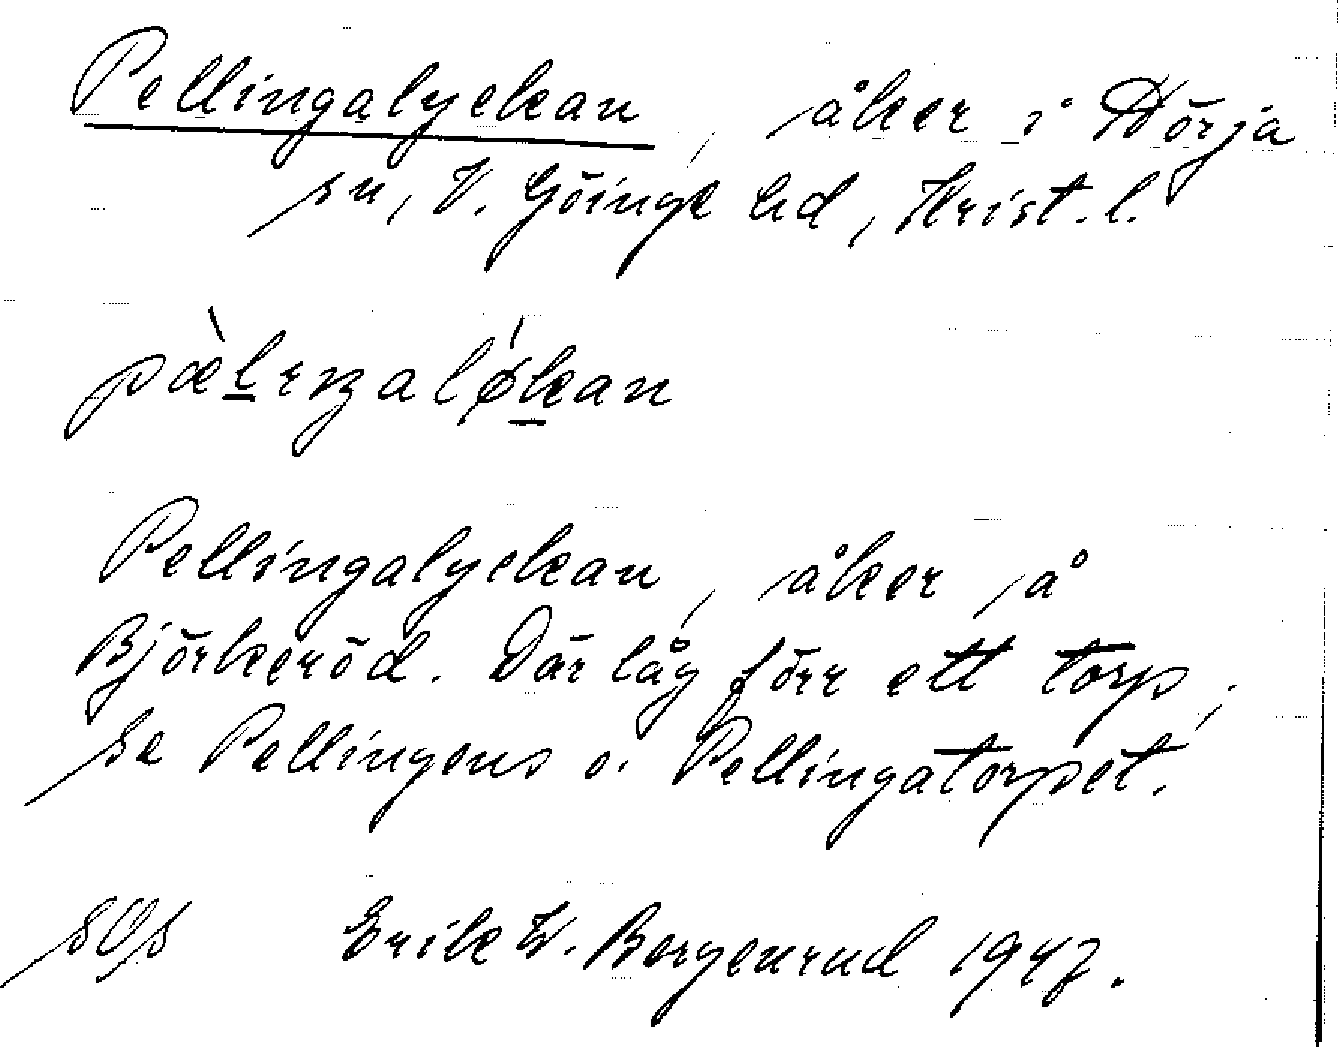 Pellingalyckan, åker i Dörja
sn, V. Göinge hd, Krist. l.
pæ̀lıŋaløkan
Pellingalyckan, åker å
Björkeröd. Där låg förr ett torp,
se Pellingens o. Pellingatorpet.
Erik W. Bergenrud 1947.